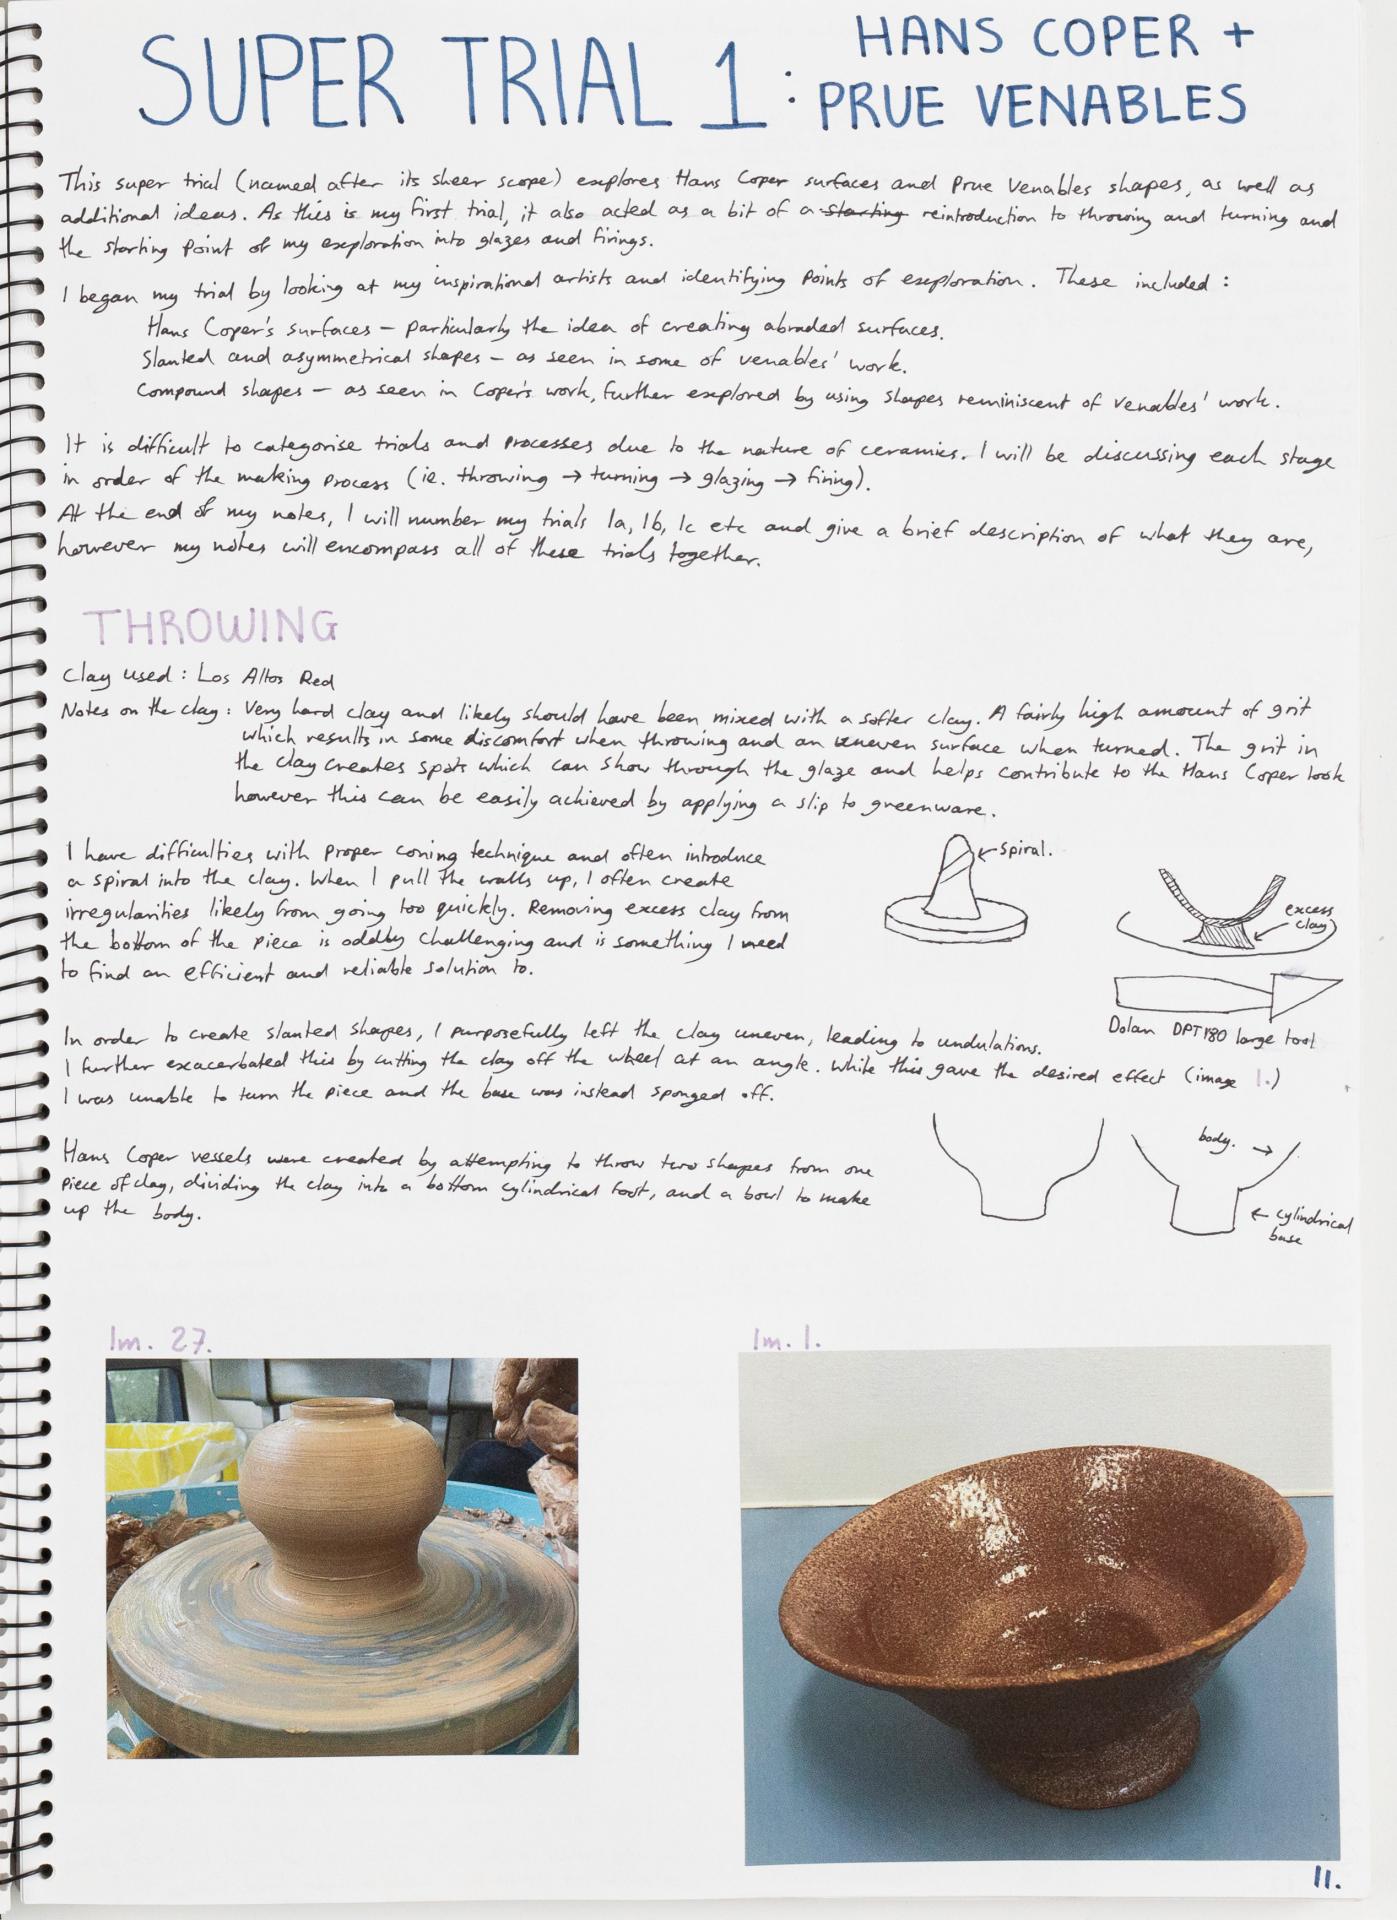 SUPER TRIAL 1: HANS COPER +
PRUE VENABLES
This super trial (named after its sheer scope) explores Hans Coper surfaces and Prue Venables shapes, as well as
additional ideas. As this is my first trial, it also acted as a bit of a starting reintroduction to throwing and turning and
the starting point of my exploration into glazes and firings.
I began my trial by looking at my inspirational artists and identifying points of exploration. These included:
Hans Coper's surfaces – particularly the idea of creating abraded surfaces.
Slanted and asymmetrical shapes – as seen in some of Venables' work.
Compound shapes – as seen in Coper's work, further explored by using shapes reminiscent of Venables' work.
It is difficult to categorise trials and processes due to the nature of ceramics. I will be discussing each stage
in order of the making process (ie. throwing → turning → glazing → firing).
At the end of my notes, I will number my trials 1a, 1b, 1c etc and give a brief description of what they are,
however my notes will encompass all of these trials together.
THROWING
Clay used: Los Altos Red
Notes on the clay: Very hard clay and likely should have been mixed with a softer clay. A fairly high amount of grit
which results in some discomfort when throwing and an uneven surface when turned. The grit in
the clay creates spots which can show through the glaze and helps contribute to the Hans Coper look
however this can be easily achieved by applying a slip to greenware.
I have difficulties with proper coning technique and often introduce
a spiral into the clay. When I pull the walls up, I often create
irregularities likely from going too quickly. Removing excess clay from
the bottom of the piece is oddly challenging and is something I need
to find an efficient and reliable solution to.
spiral.
excess
clay
Dolan DPT180 large tool
In order to create slanted shapes, I purposefully left the clay uneven, leading to undulations.
I further exacerbated this by cutting the clay off the wheel at an angle. While this gave the desired effect (image 1.)
I was unable to turn the piece and the base was instead sponged off.
Hans Coper vessels were created by attempting to throw two shapes from one
piece of clay, dividing the clay into a bottom cylindrical foot, and a bowl to make
up the body.
body. →
← cylindrical
base
Im. 27.
Im. 1.
11.